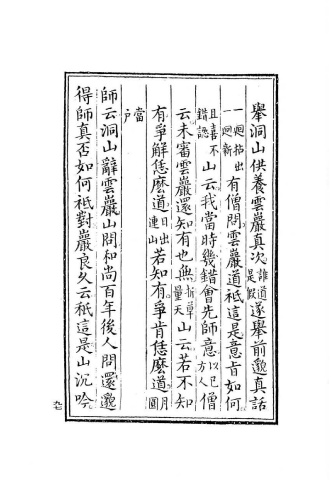 舉洞山供養雲巖真次誰道是假遂舉前邈真話
一迴拈出一迴新有僧問雲巖道祗這是意旨如何
且喜不錯認山云我當時幾錯會先師意以己方人僧
云未審雲巖還知有也無折草量天山云若不知
有爭解恁麼道日出連山若知有爭肯恁麼道月圓
當戶
師云洞山辭雲巖山問和尚百年後人問還邈
得師真否如何祗對巖良久云祗這是山沉吟
九七